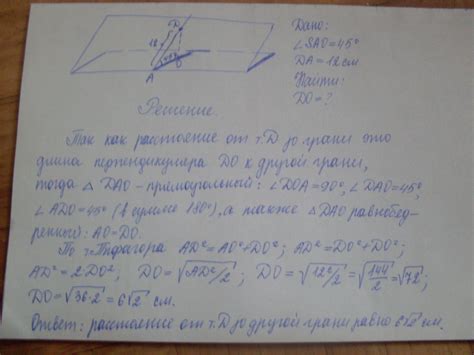 D
12
45°
O
A
Дано:
∠SAO=45°
DA=12см
Найти:
DO=?
Решение.
Так как расстояние от т.D до грани это
длина перпендикуляра DO к другой грани,
тогда △ DAO - прямоугольный: ∠DOA=90°, ∠DAO=45°,
∠ADO=45° (в сумме 180°), а также △DAO равнобед-
ренный: AO=DO.
По т.Пифагора AD²=AO²+DO²; AD²=DO²+DO²;
AD²=2·DO²; DO=√AD²/2; DO=√12²/2=√144/2=√72;
DO=√36·2=6√2 см.
Ответ: расстояние от т.D до другой грани равно 6√2 см.